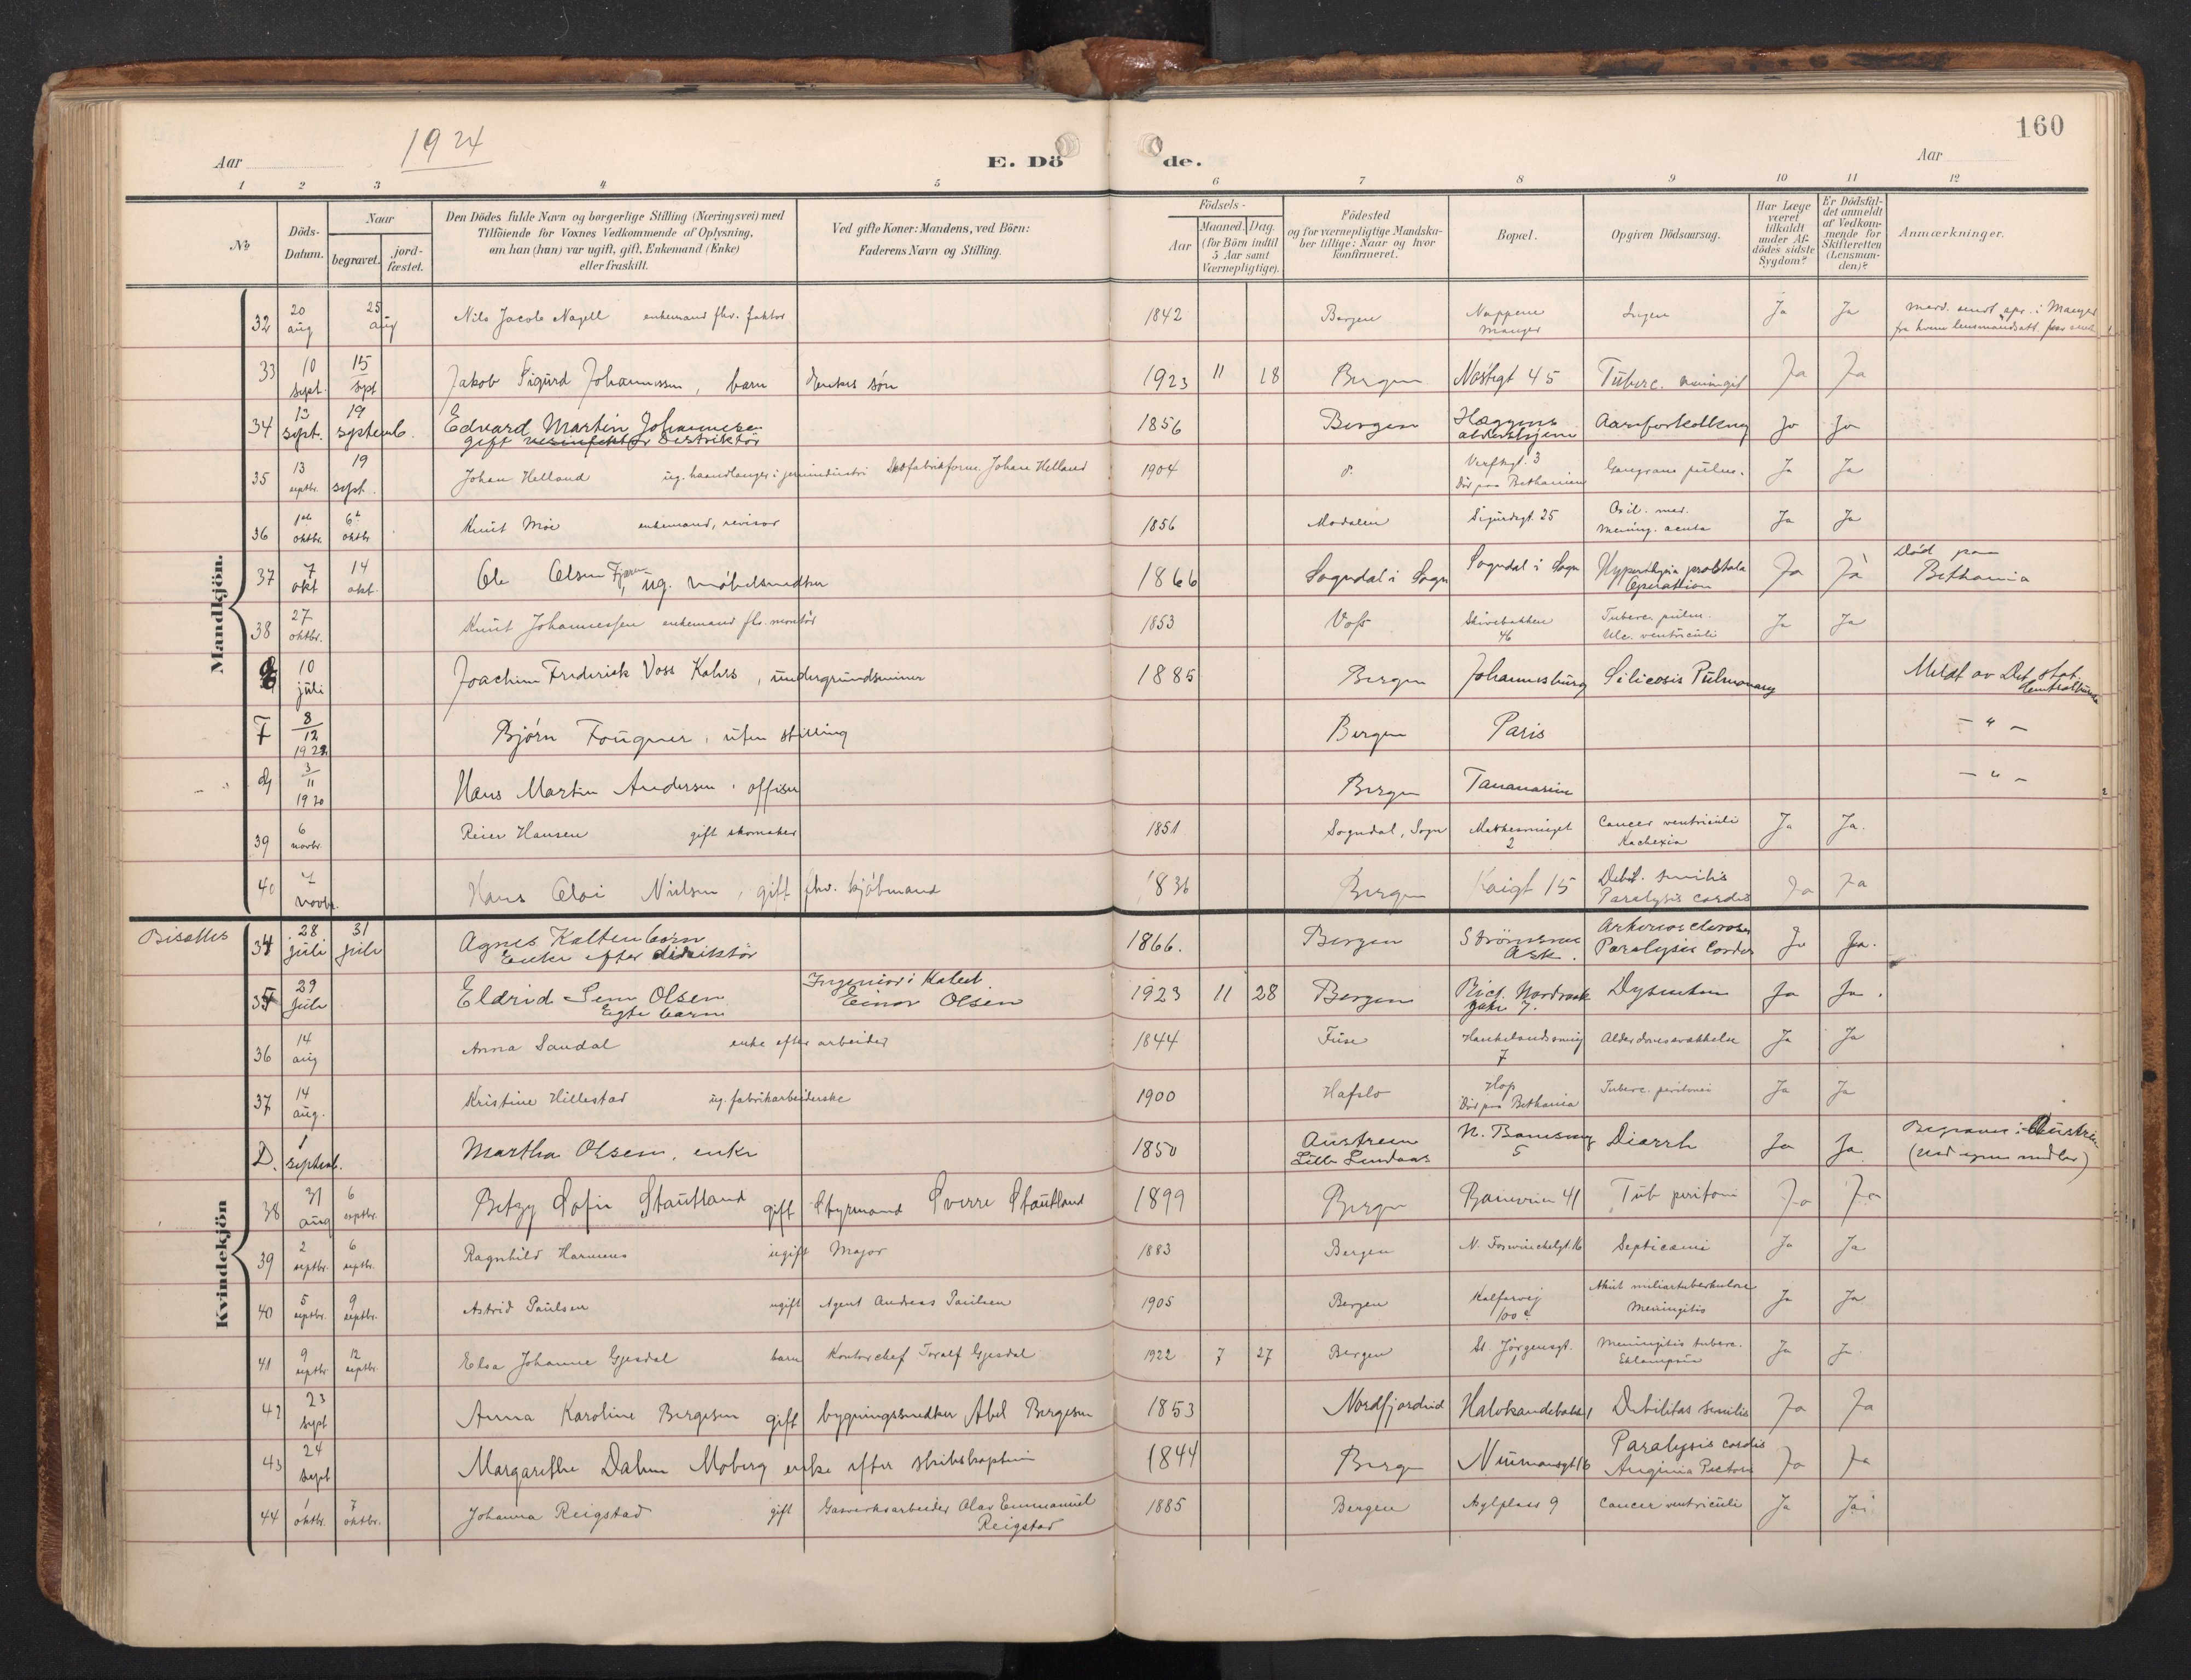 160
1924
Aar
E. Dö de.
Aar
1 2 3 4 5 6 7 8 9 10 11 12
No
Döds-Datum.
Naar
begravet. jord-fæstet.
Den Dödes fulde Navn og borgerlige Stilling (Næringsvei) med
Tilföiende for Voxnes Vedkommende af Oplysning,
om han (hun) var ugift, gift, Enkemand (Enke)
eller fraskilt.
Ved gifte Koner: Mandens, ved Börn:
Faderens Navn og Stilling.
Födsels-
Aar
Maaned. Dag.
(for Börn indtil
5 Aar samt
Værnepligtige).
Födested
og for værnepligtige Mandska-
ber tillige: Naar og hvor
konfirmeret.
Bopæl.
Opgiven Dödsaarsag.
Har Læge
været
tilkaldt
under Af-
dödes sidste
Sygdom?
Er Dödsfal-
det anmeldt
af Vedkom-
mende for
Skifteretten
(Lensman-
den)?
Anmærkninger.
Mandkjön.
32 20 aug 25 aug Nils Jacob Nagell enkemand fhv. faktor 1842 Bergen Manger Ingen Ja Ja
33 10 sept. 15 sept Jakob Sigurd Johannessen, barn Enkes søn 1923 11 18 Bergen Nøstegt 45 Tuberc. meningit Ja Ja
34 13 sept. 19 septemb. Edvard Martin Johannesen 1856 Bergen Hæggens Aareforkalkning Ja Ja
gift aldershjem
35 13 septbr. 19 sept. Johan Helland ug. haandlanger i Johan Helland 1904 Verftsgt. 3 Gangræne pulm. Ja Ja
Død paa Bethanien
36 1ste oktbr. 6te oktbr Knut Moe enkemand, revisor 1856 Modalen Sigurdsgt. 25 Otit. med. Ja Ja
Mening. acuta
37 7 okt 14 okt. Ole Olsen Fjæren, ug. møbelsnedker 1866 Sogndal i Sogn Sogndal i Sogn Hypertrophia prostata Ja Ja Død paa
Operation Bethania
38 27 oktbr. Knut Johannessen enkemand fhv. montør 1853 Voss Skivebakken Tuberc. pulm. Ja Ja
46 Ulc. ventriculi
E 10 juli Joachim Frederick Voss Kahrs, undergrundsminer 1885 Bergen Johannesburg Silicosis Pulmonary Meldt av Det stat.
F 8/12 1922 Bjørn Fougner, uten stilling Bergen Paris – " –
G 3/11 1920 Hans Martin Andersen, offiser Bergen Tananarive – " –
39 6 novbr. Reier Hansen gift skomaker 1851 Sogndal, Sogn Cancer ventriculi Ja Ja.
2 Kachexia
40 novbr. Hans Nielsen, gift fhv. kjøbmand 1836 Bergen Kaigt 15 Debil. senilis Ja Ja
Paralysis cordis
Kvindekjön
Bisattes 34 28 juli 31 juli Agnes Kaltenborn 1866. Bergen Arteriosclerose Ja Ja.
Enke efter Ask. Paralysis Cordis
35 29 juli Eldrid Sem Olsen Ingeniør i 1923 11 28 Bergen Rict. Nordraak Dysenteri Ja Ja.
Egte barn Einar Olsen gate 7.
36 14 aug Anna Sandal enke efter arbeider 1844 Fuse 7 Alderdomssvækkelse Ja Ja
37 14 aug. Kristine Hillestad ug. fabrikarbeiderske 1900 Hafslo Hop Tuberc. peritonei Ja Ja
Død paa Bethania
D. 1 septemb. Martha Olsen, enke 1850 Austreim 5 Diarrh Ja Ja Begraves i Austrheim
Lille Lindaas
38 31 aug 6 septbr. Betzy Sofie Stautland gift Styrmand Sverre Stautland 1899 Bergen 41 Tub peritoni Ja Ja
39 2 septbr. 6 septbr. Ragnhild Harmens ugift Major 1883 Bergen N. Foswinckelgt. 16 Septicæmi Ja Ja
40 5 septbr. 9 septbr. Astrid Paulsen ugift Agent Andreas Paulsen 1905 Bergen Kalfarvej Akut miliartuberkulose Ja Ja
100 c Meningitis
41 9 septbr 12 septbr. Elsa Johanne Gjesdal barn Kontorchef Toralf Gjesdal 1922 7 27 Bergen St. Jørgensgt. Meningitis tuberc. Ja Ja
1 Eklampsia
42 23 sept Anna Karoline Bergesen gift bygningssnedker Abel Bergesen 1853 Nordfjordeid Halvkandebakk 1 Debilitas senilis Ja Ja
43 24 sept Margarethe Dahm Moberg enke efter skibskaptein 1844 Bergen Neumansgt 16 Paralysis cordis Ja Ja
Anginia Pectoris
44 1 oktbr. 7 oktbr. Johanna Reigstad gift Gasverksarbeider Olav Emmanuel 1885 Bergen Asylplass 9 Cancer ventriculi Ja Ja
Reigstad